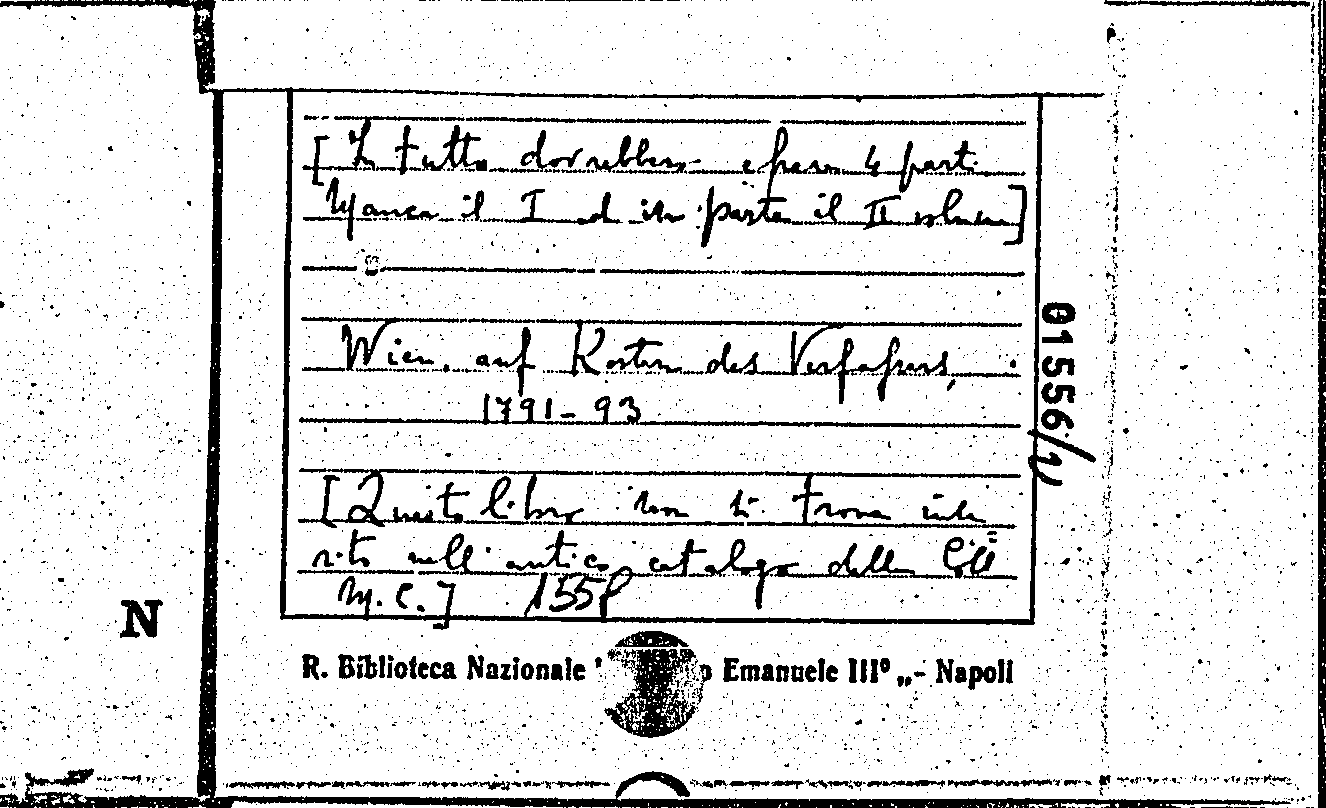 [In tutto dovrebbero essere 4 parti.
Manca il I ed in parte il II volume]
Wien, auf Kosten des Verfassers,
1791-93
[Questo libro non si trova inse
rito nell'antico catalogo della Coll
M. C.] 155
01556/
N
R. Biblioteca Nazionale " o Emanuele III° „- Napoli